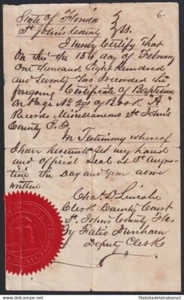 State of Florida
St Johns County } SS.
I Hereby Certify That
On this the 13th day of February
One thousand Eight Hundred
and Seventy has recorded the
foregoing Certificate of Baptism
on Page No 29 of Book "A"
Records Miscellaneous St Johns
County
In Testimony whereof
I have hereunto set my hand
and official seal at St Augus
tine the Day and year above
written
Chas D. Lincoln
Clerk County Court
St Johns County Fla
By Dunham
Deputy Clerk